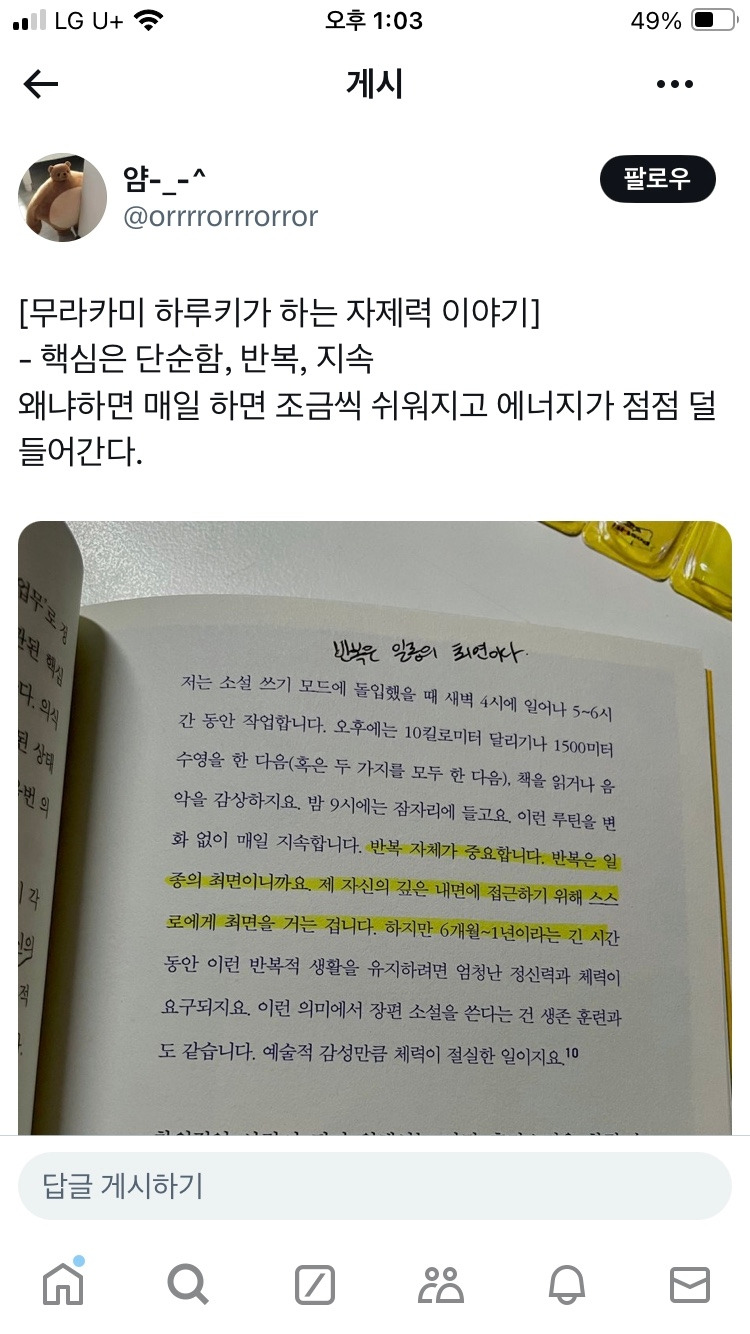 LG U+
오후 1:03
49%
게시
얌-_-^
@orrrrorrrorror
팔로우
[무라카미 하루키가 하는 자제력 이야기]
- 핵심은 단순함, 반복, 지속
왜냐하면 매일 하면 조금씩 쉬워지고 에너지가 점점 덜
들어간다.
업무'로 정
관된 핵심
다. 의식
된 상태
번 의
각
적
반복은 일종의 최면이다.
저는 소설 쓰기 모드에 돌입했을 때 새벽 4시에 일어나 5~6시
간 동안 작업합니다. 오후에는 10킬로미터 달리기나 1500미터
수영을 한 다음(혹은 두 가지를 모두 한 다음), 책을 읽거나 음
악을 감상하지요. 밤 9시에는 잠자리에 들고요. 이런 루틴을 변
화 없이 매일 지속합니다. 반복 자체가 중요합니다. 반복은 일
종의 최면이니까요. 제 자신의 깊은 내면에 접근하기 위해 스스
로에게 최면을 거는 겁니다. 하지만 6개월~1년이라는 긴 시간
동안 이런 반복적 생활을 유지하려면 엄청난 정신력과 체력이
요구되지요. 이런 의미에서 장편 소설을 쓴다는 건 생존 훈련과
도 같습니다. 예술적 감성만큼 체력이 절실한 일이지요.10
답글 게시하기